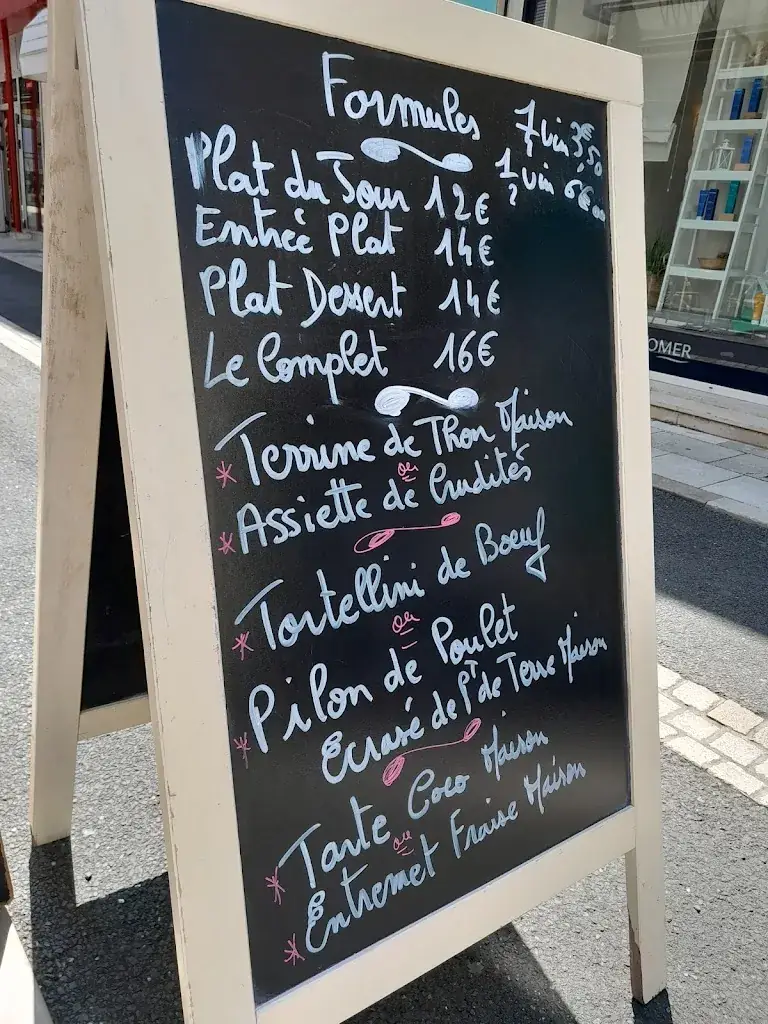 Formules
1 vin 3€,50
1 vin 6€00
Plat du Jour 12€
Entrée Plat 14€
Plat Dessert 14€
Le Complet 16€
* Terrine de Thon Maison
ou
* Assiette de Crudités
* Tortellini de Boeuf
ou
* Pilon de Poulet
Ecrasé de Pᵀ de Terre Maison
* Tarte Coco Maison
ou
* Entremet Fraise Maison
OMER